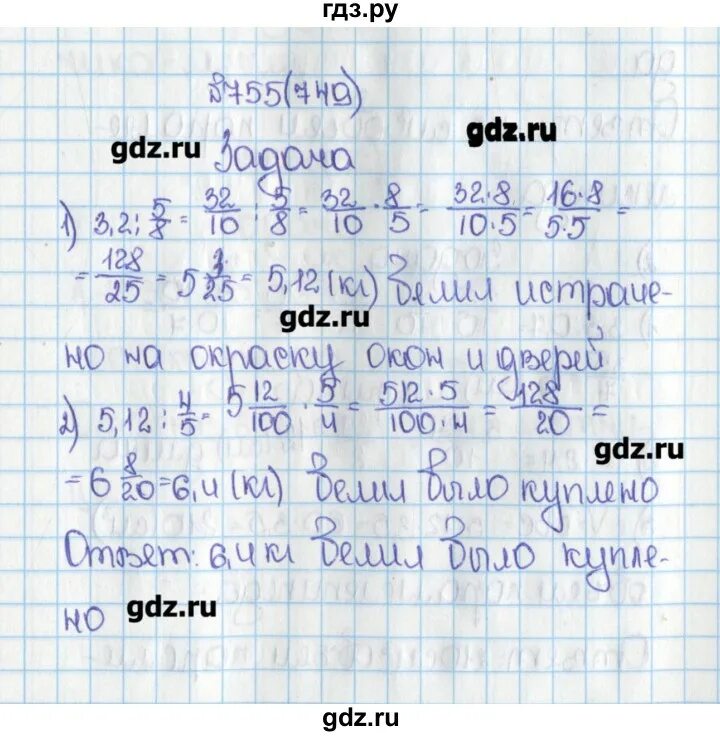 гдз.ру
№755(749)
gdz.ru
gdz.ru
Задача
1) 3,2 : 5/8 = 32/10 : 5/8 = 32/10 · 8/5 = 32·8/10·5 = 16·8/5·5 =
= 128/25 = 5 3/25 = 5,12 (кг) белил истраче-
gdz.ru
но на окраску окон и дверей
2) 5,12 : 4/5 = 5 12/100 · 5/4 = 512·5/100·4 = 128/20 =
gdz.ru
= 6 8/20 = 6,4 (кг) белил было куплено
Ответ: 6,4 кг белил было купле-
но
gdz.ru
gdz.ru